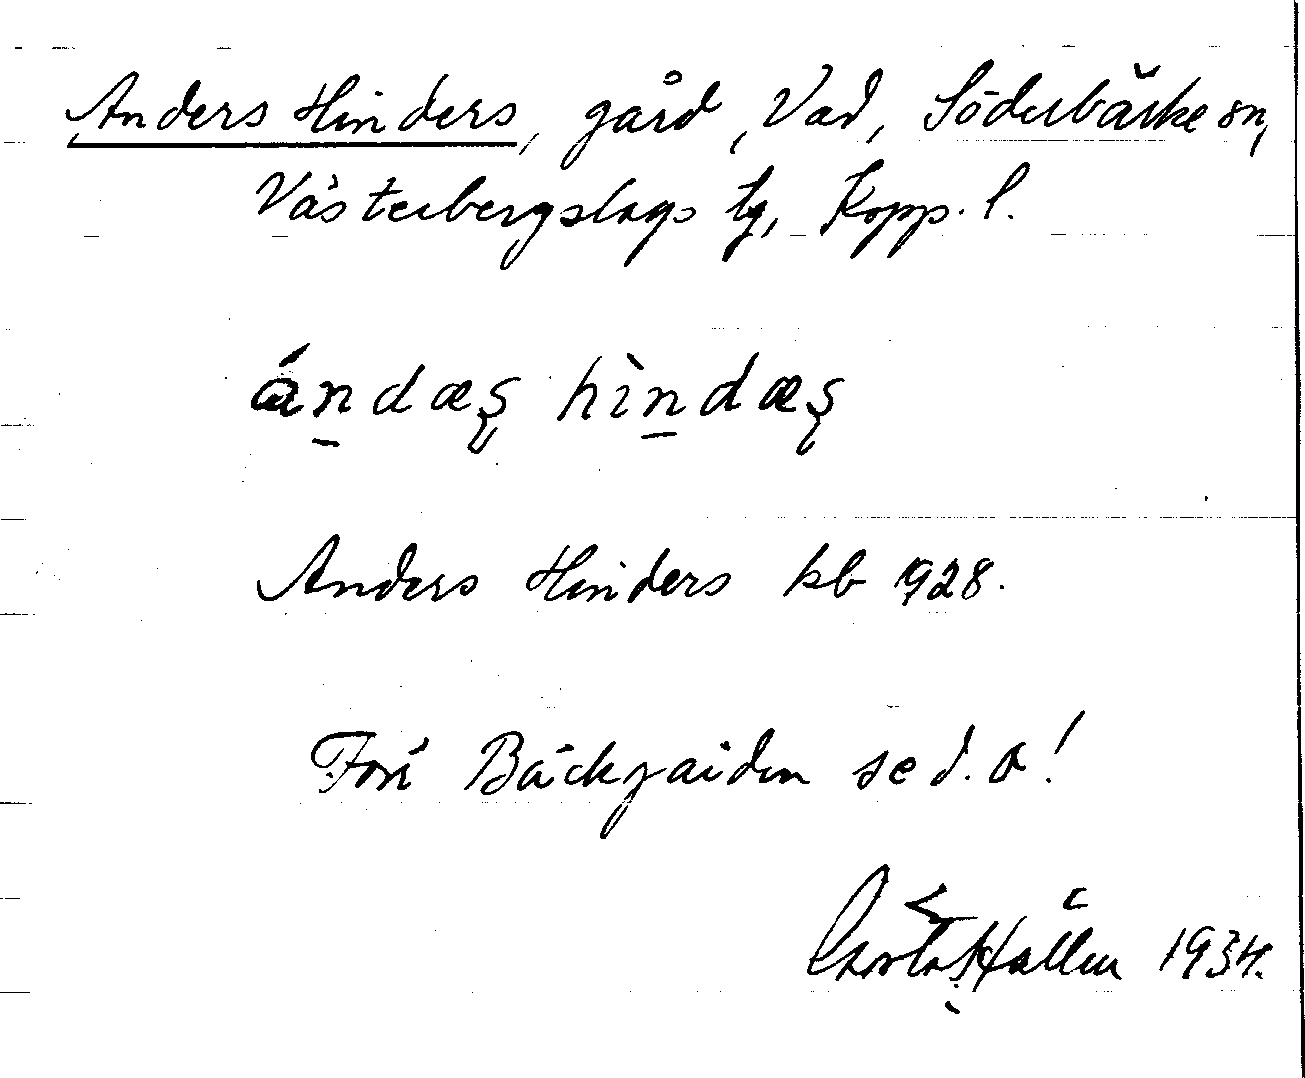 Anders Hinders, gård, Vad, Söderbärke sn,
Västerbergslags tg, Kopp. l.
ándæʂ hìndæʂ
Anders Hinders kb 1928.
Förr Bäckgården se d. o!
Hállén 1934.